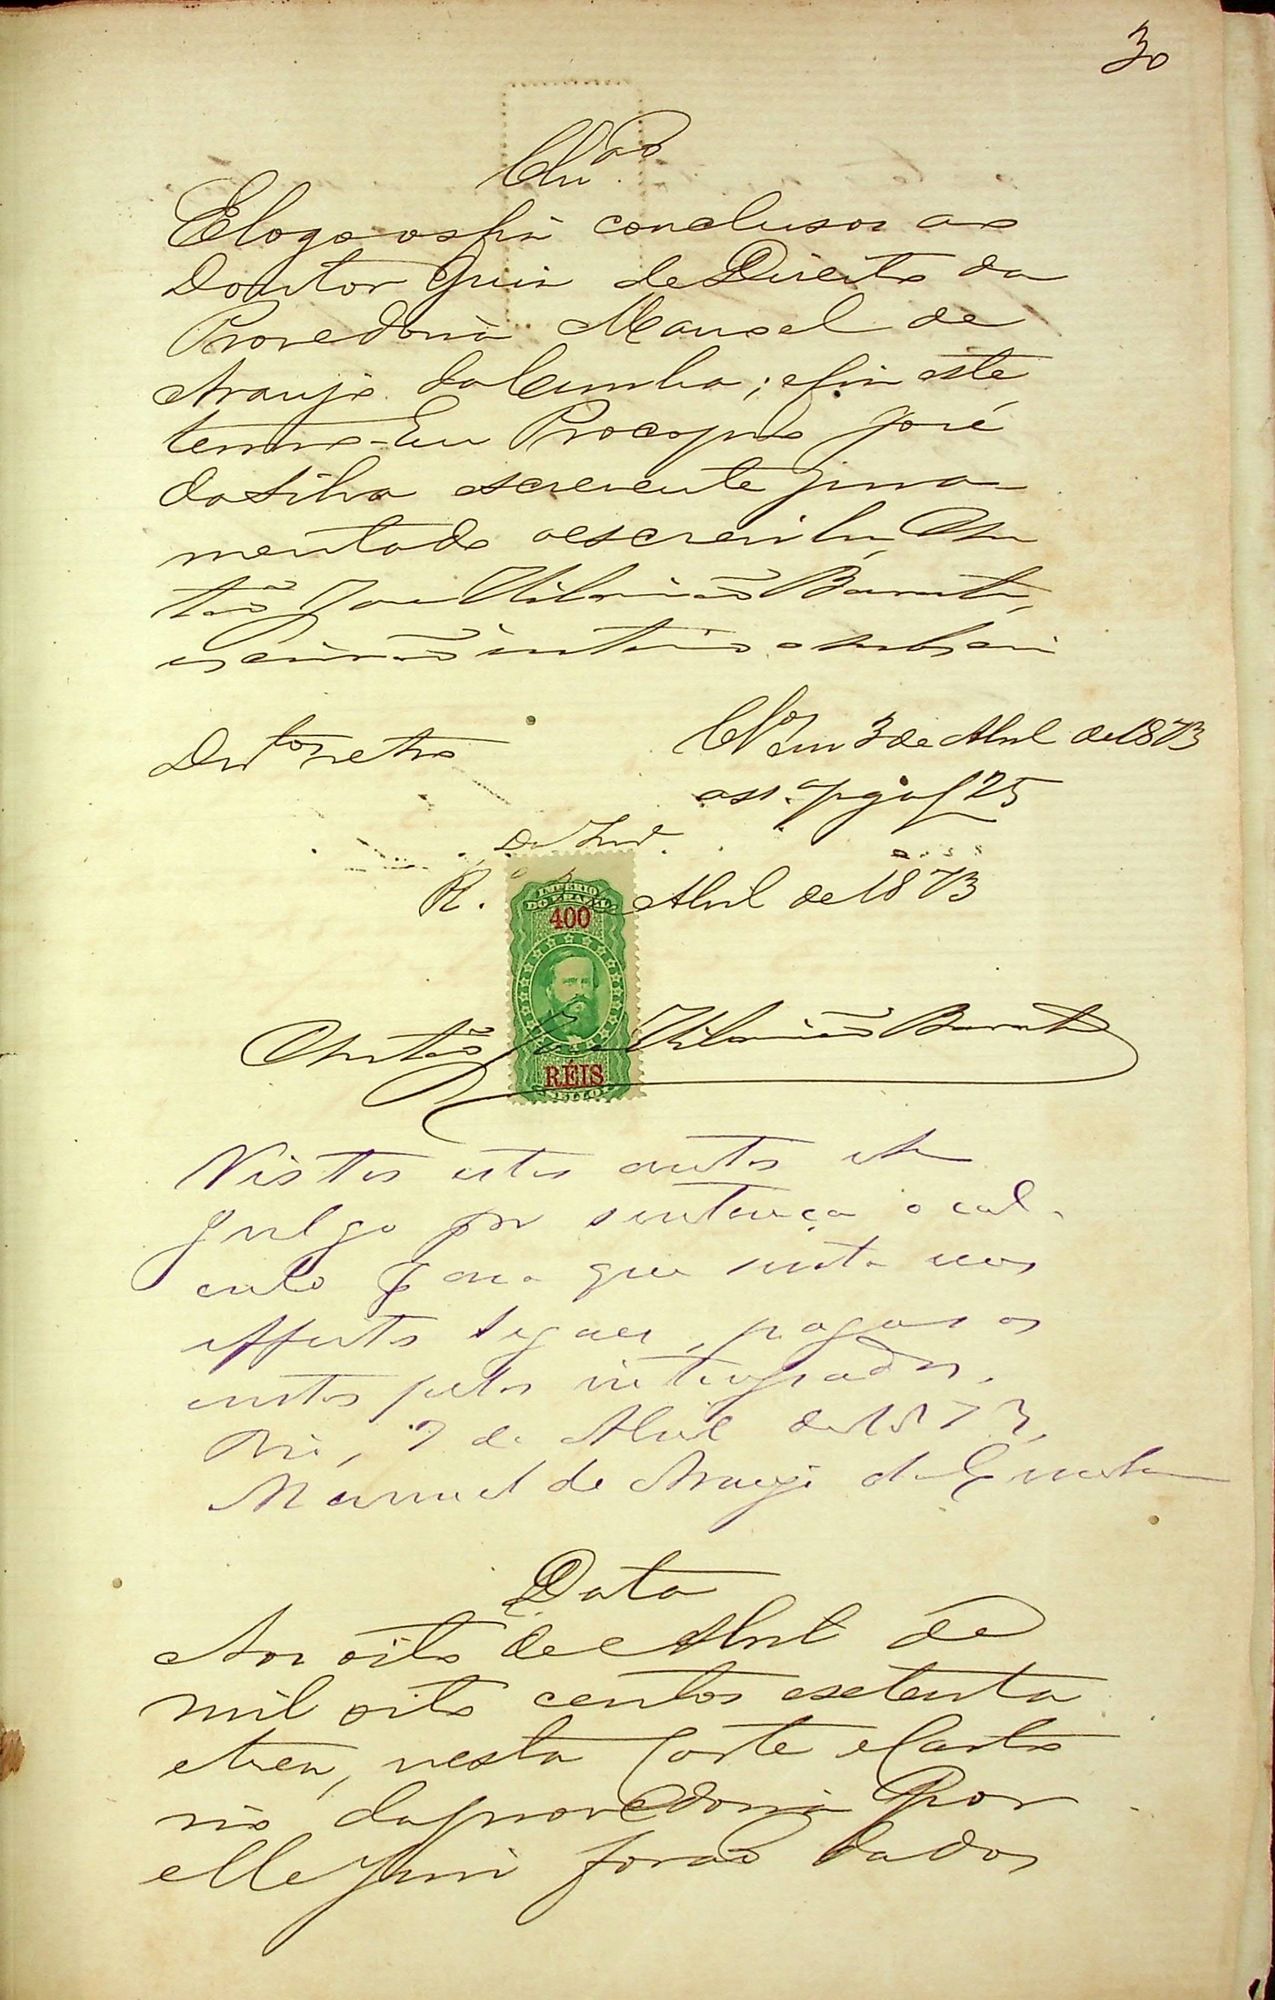 30
Clu.ão
E logo os fiz conclusos ao
Doutor Juiz de Direito da
Provedoria Manoel de
Araujo da Cunha; e fiz este
termo. Eu Procopio José
da Silva escrevente jura-
mentado o escrevi. Eu, Chris
tão José Vilarinho Barreto,
escrivão interino o subscrevi
Dist.o retro
Cls em 3 de Abril de 1873
R.
Abril de 1873
IMPERIO
DO BRAZIL
400
RÉIS
Vistos estes autos etc
julgo por sentença o cal-
culo para que surta seus
effeitos legaes, pagas as
custas pelos interessados.
Rio, 7 de Abril de 1873,
Manuel de Araujo da Cunha
Data
Aos oito de Abril de
mil oito centos e setenta
e tres, nesta Corte e Carto
rio da provedoria Por
elle Juiz forão dados